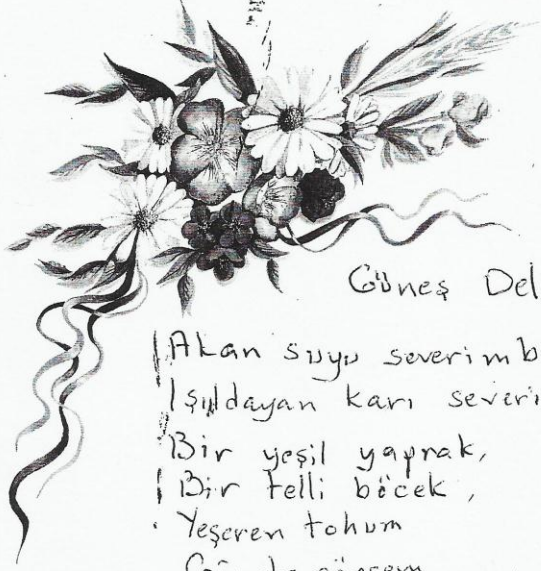 Güneş Del
Akan suyu severim b
Işıldayan karı severi
Bir yeşil yaprak,
Bir telli böcek,
Yeşeren tohum